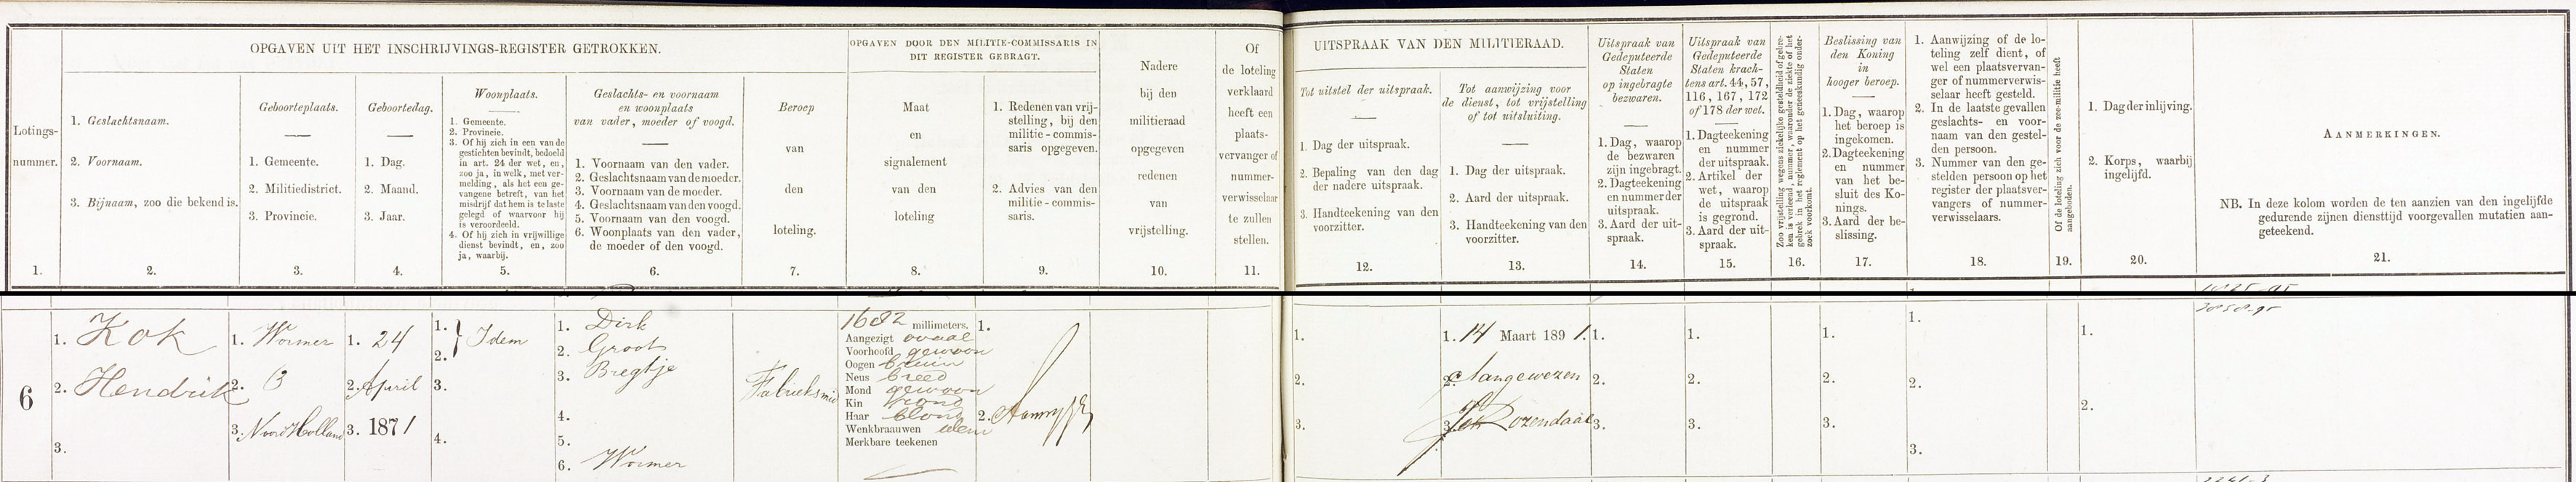 OPGAVEN UIT HET INSCHRIJVINGS-REGISTER GETROKKEN.
OPGAVEN DOOR DEN MILITIE-COMMISSARIS IN
DIT REGISTER GEBRAGT.
Lotings-
nummer.
1.
1. Geslachtsnaam.
2. Voornaam.
3. Bijnaam, zoo die bekend is.
2.
Geboorteplaats.
1. Gemeente.
2. Militiedistrict.
3. Provincie.
3.
Geboortedag.
1. Dag.
2. Maand.
3. Jaar.
4.
Woonplaats.
1. Gemeente.
2. Provincie.
3. Of hij zich in een van de
gestichten bevindt, bedoeld
in art. 24 der wet, en,
zoo ja, in welk, met ver-
melding, als het een ge-
vangene betreft, van het
misdrijf dat hem is te laste
gelegd of waarvoor hij
is veroordeeld.
4. Of hij zich in vrijwillige
dienst bevindt, en, zoo
ja, waarbij.
5.
Geslachts- en voornaam
en woonplaats
van vader, moeder of voogd.
1. Voornaam van den vader.
2. Geslachtsnaam van de moeder.
3. Voornaam van de moeder.
4. Geslachtsnaam van den voogd.
5. Voornaam van den voogd.
6. Woonplaats van den vader,
de moeder of den voogd.
6.
Beroep
van
den
loteling.
7.
Maat
en
signalement
van den
loteling
8.
1. Redenen van vrij-
stelling, bij den
militie-commis-
saris opgegeven.
2. Advies van den
militie-commis-
saris.
9.
Nadere
bij den
militieraad
opgegeven
redenen
van
vrijstelling.
10.
Of
de loteling
verklaard
heeft een
plaats-
vervanger of
nummer-
verwisselaar
te zullen
stellen.
11.
UITSPRAAK VAN DEN MILITIERAAD.
Tot uitstel der uitspraak.
1. Dag der uitspraak.
2. Bepaling van den dag
der nadere uitspraak.
3. Handteekening van den
voorzitter.
12.
Tot aanwijzing voor
de dienst, tot vrijstelling
of tot uitsluiting.
1. Dag der uitspraak.
2. Aard der uitspraak.
3. Handteekening van den
voorzitter.
13.
Uitspraak van
Gedeputeerde
Staten
op ingebragte
bezwaren.
1. Dag, waarop
de bezwaren
zijn ingebragt.
2. Dagteekening
en nummer der
uitspraak.
3. Aard der uit-
spraak.
14.
Uitspraak van
Gedeputeerde
Staten krach-
tens art. 44, 57,
116, 167, 172
of 178 der wet.
1. Dagteekening
en nummer
der uitspraak.
2. Artikel der
wet, waarop
de uitspraak
is gegrond.
3. Aard der uit-
spraak.
15.
Zoo vrijstelling wegens ziekelijke gesteldheid of gebre-
ken is verleend, nummer, waaronder de ziekte of het
gebrek in het reglement op het geneeskundig onder-
zoek voorkomt.
16.
Beslissing van
den Koning
in
hooger beroep.
1. Dag, waarop
het beroep is
ingekomen.
2. Dagteekening
en nummer
van het be-
sluit des Ko-
nings.
3. Aard der be-
slissing.
17.
1. Aanwijzing of de lo-
teling zelf dient, of
wel een plaatsvervan-
ger of nummerverwis-
selaar heeft gesteld.
2. In de laatste gevallen
geslachts- en voor-
naam van den gestel-
den persoon.
3. Nummer van den ge-
stelden persoon op het
register der plaatsver-
vangers of nummer-
verwisselaars.
18.
Of de loteling zich voor de zee-militie heeft
aangeboden.
19.
1. Dag der inlijving.
2. Korps, waarbij
ingelijfd.
20.
AANMERKINGEN.
NB. In deze kolom worden de ten aanzien van den ingelijfde
gedurende zijnen diensttijd voorgevallen mutatien aan-
geteekend.
21.
6
1. Kok
2. Hendrik
3.
1. Wormer
2. 3
3. Noord Holland
1. 24
2. April
3. 1871
1. } Idem
2.
3.
4.
1. Dirk
2. Groot
3. Bregtje
4.
5.
6. Wormer
Fabrieksmid
1682 millimeters.
Aangezigt ovaal
Voorhoofd gewoon
Oogen bruin
Neus breed
Mond gewoon
Kin rond
Haar blond
Wenkbraauwen idem
Merkbare teekenen
1.
2. Aanwijz
1.
2.
3.
1. 14 Maart 1891.
2. Aangewezen
3. Rozendaal
1.
2.
3.
1.
2.
3.
1.
2.
3.
1.
2.
3.
1.
2.